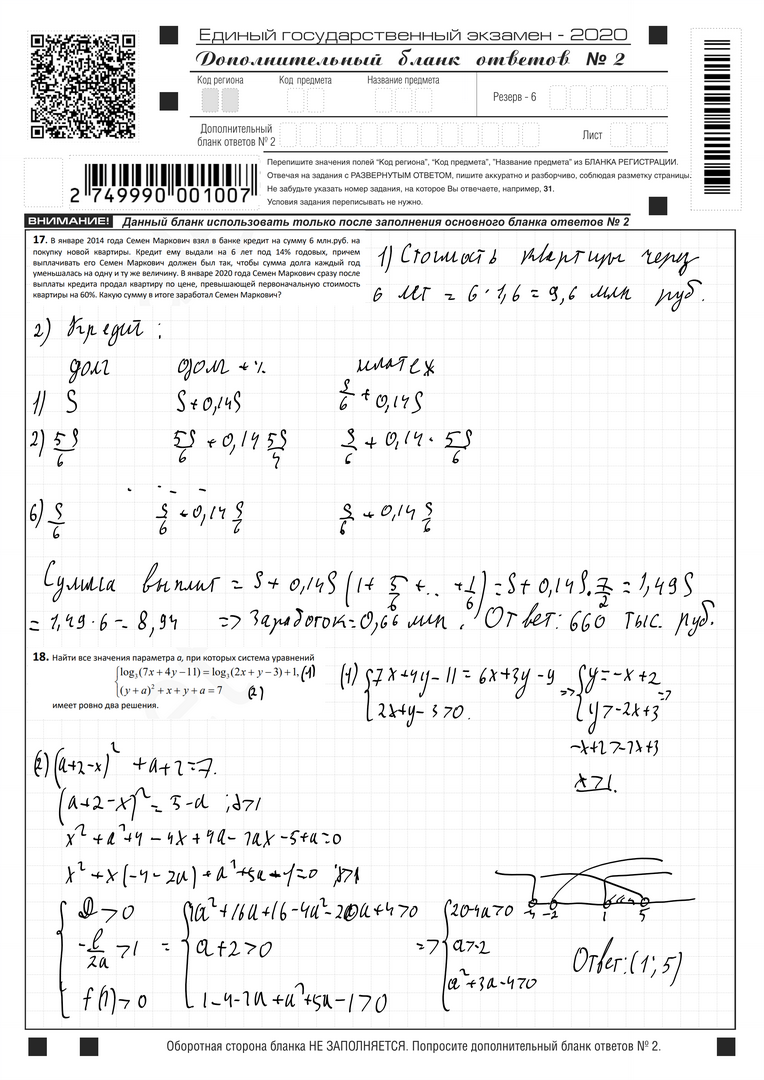 Единый государственный экзамен - 2020
Дополнительный бланк ответов № 2
Код региона
Код предмета
Название предмета
Резерв - 6
Дополнительный
бланк ответов № 2
Лист
Перепишите значения полей "Код региона", "Код предмета", "Название предмета" из БЛАНКА РЕГИСТРАЦИИ.
Отвечая на задания с РАЗВЕРНУТЫМ ОТВЕТОМ, пишите аккуратно и разборчиво, соблюдая разметку страницы.
Не забудьте указать номер задания, на которое Вы отвечаете, например, 31.
Условия задания переписывать не нужно.
2 749990 001007
ВНИМАНИЕ! Данный бланк использовать только после заполнения основного бланка ответов № 2
17. В январе 2014 года Семен Маркович взял в банке кредит на сумму 6 млн.руб. на
покупку новой квартиры. Кредит ему выдали на 6 лет под 14% годовых, причем
выплачивать его Семен Маркович должен был так, чтобы сумма долга каждый год
уменьшалась на одну и ту же величину. В январе 2020 года Семен Маркович сразу после
выплаты кредита продал квартиру по цене, превышающей первоначальную стоимость
квартиры на 60%. Какую сумму в итоге заработал Семен Маркович?
1) Стоимость квартиры через
6 лет = 6 · 1,6 = 9,6 млн руб.
2) Кредит:
долг долг + % платеж
1) S S+0,14S S/6 + 0,14S
2) 5S/6 5S/6 + 0,14 5S/4 S/6 + 0,14 · 5S/6
. . . .
6) S/6 S/6 + 0,14 S/6 S/6 + 0,14 S/6
Сумма выплат = S + 0,14S (1 + 5/6 + .. + 1/6) = S + 0,14S · 7/2 = 1,49S
= 1,49 · 6 = 8,94 => Заработок = 0,66 млн. Ответ: 660 тыс. руб.
18. Найти все значения параметра а, при которых система уравнений
{log₃(7x + 4y − 11) = log₃(2x + y − 3) + 1, (1)
(y + a)² + x + y + a = 7 (2)
имеет ровно два решения.
(1) {7x+4y-11 = 6x+3y-9 => {y = -x+2 =>
2x+y-3>0. y>-2x+3
-x+2>-2x+3
x>1.
(2) (a+2-x)² + a+2=7.
(a+2-x)² = 5-a ; x>1
x² + a² + 4 - 4x + 4a - 2ax - 5+a=0
x² + x(-4-2a) + a² + 5a - 1=0 x>1
{D>0 = {4a²+16a+16-4a²-20a+4>0 => {20-4a>0
-b/2a >1 a+2>0 a>-2
f(1)>0 1-4-2a+a²+5a-1>0 a²+3a-4>0
-4 -2 1 5
Ответ: (1; 5)
Оборотная сторона бланка НЕ ЗАПОЛНЯЕТСЯ. Попросите дополнительный бланк ответов № 2.